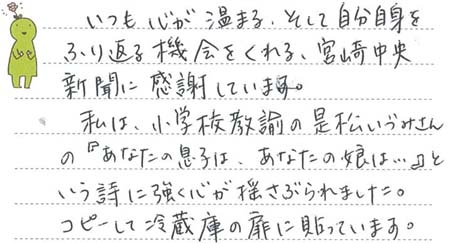 いつも心が温まる、そして自分自身を
ふり返る機会をくれる、宮崎中央
新聞に感謝しています。
私は、小学校教諭の是松いづみさん
の『あなたの息子は、あなたの娘は…』と
いう詩に強く心が揺さぶられました。
コピーして冷蔵庫の扉に貼っています。